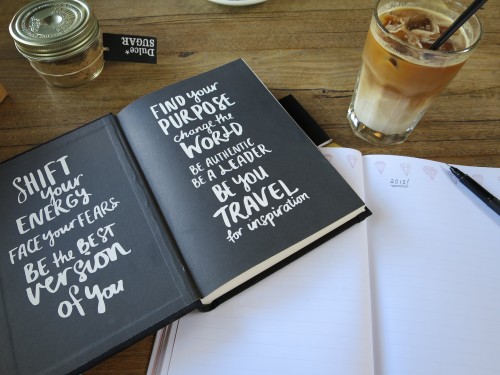 SHIFT
your
ENERGY
FACE your FEARS
BE the BEST
version
of you
FIND your
PURPOSE
change the
WORLD
BE AUTHENTIC
BE A LEADER
BE YOU
TRAVEL
for inspiration
Dulce
SUGAR